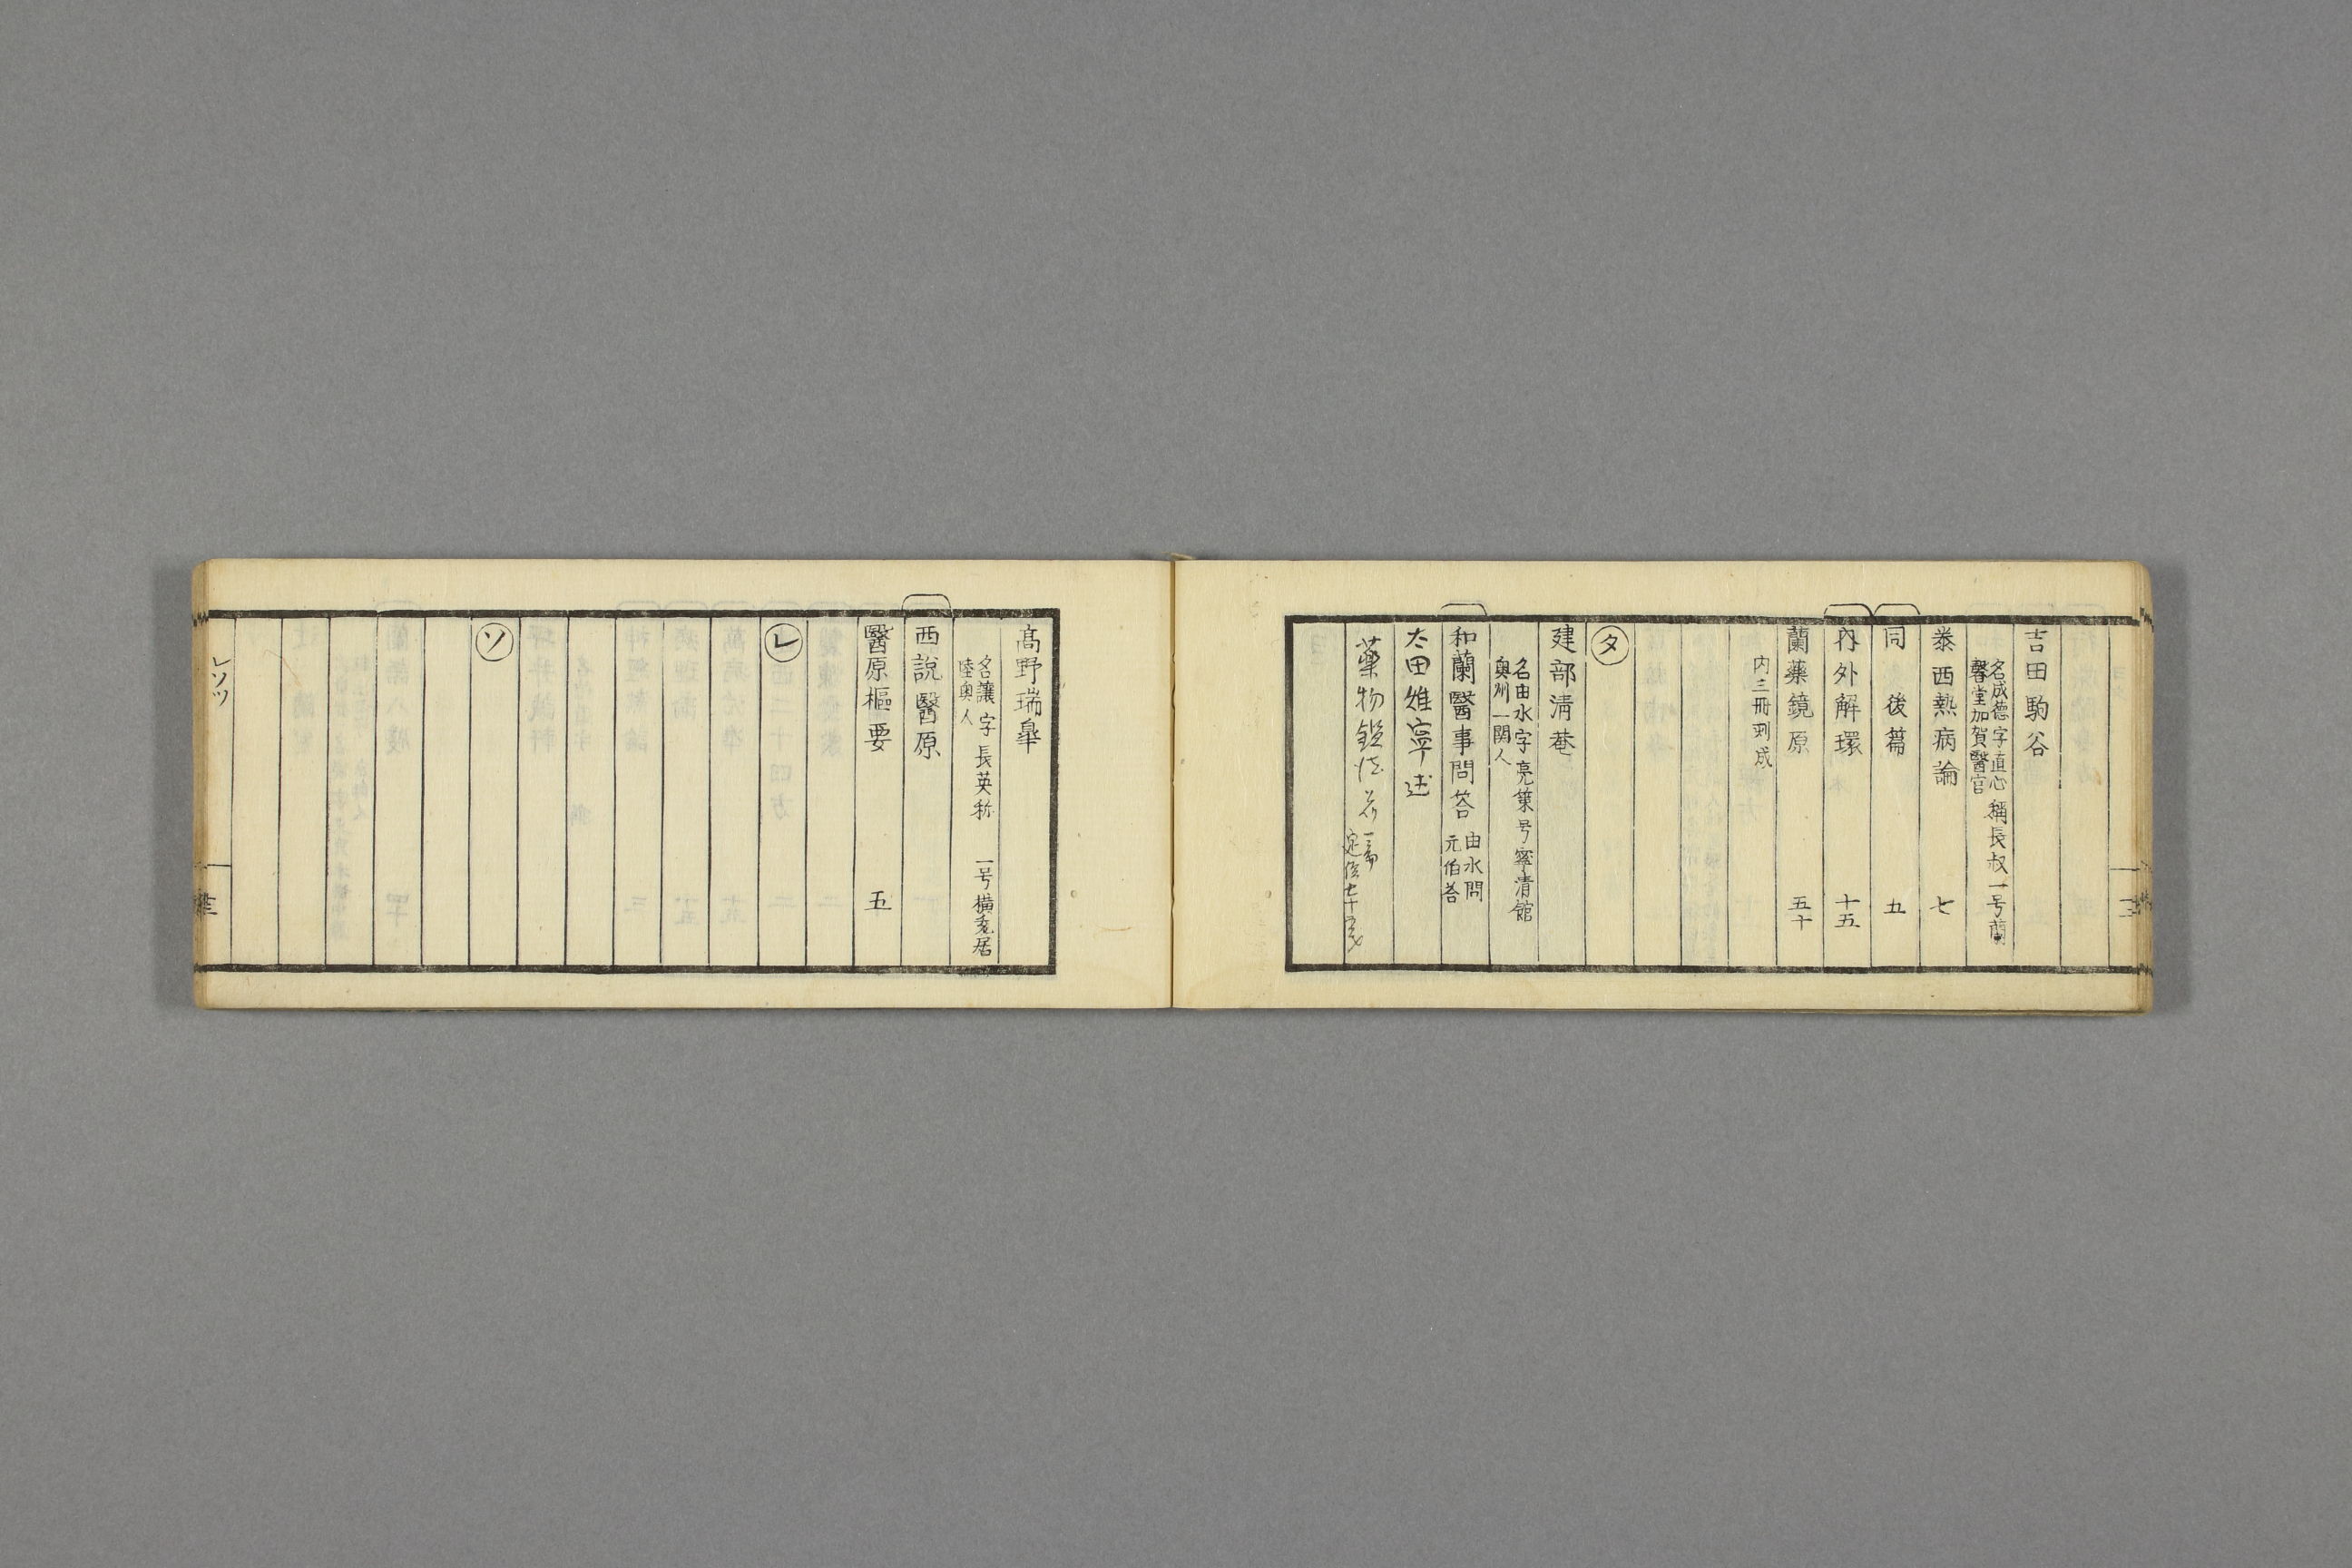 吉田駒谷
名成徳字直心稱長叔一号蘭
馨堂加賀醫官
泰西熱病論 七
同後篇 五
内外解環 十五
蘭藥鏡原 五十
内三冊刻成
タ
建部淸菴
名由水字亮策号寧清館
奥州一関人
和蘭醫事問荅 由水問
元伯荅
太田雄寧述
藥物鑑法
高野瑞皐
名讓字長英称 一号横
陸奥人
西說醫原
醫原樞要 五
レ
ソ
レソツ